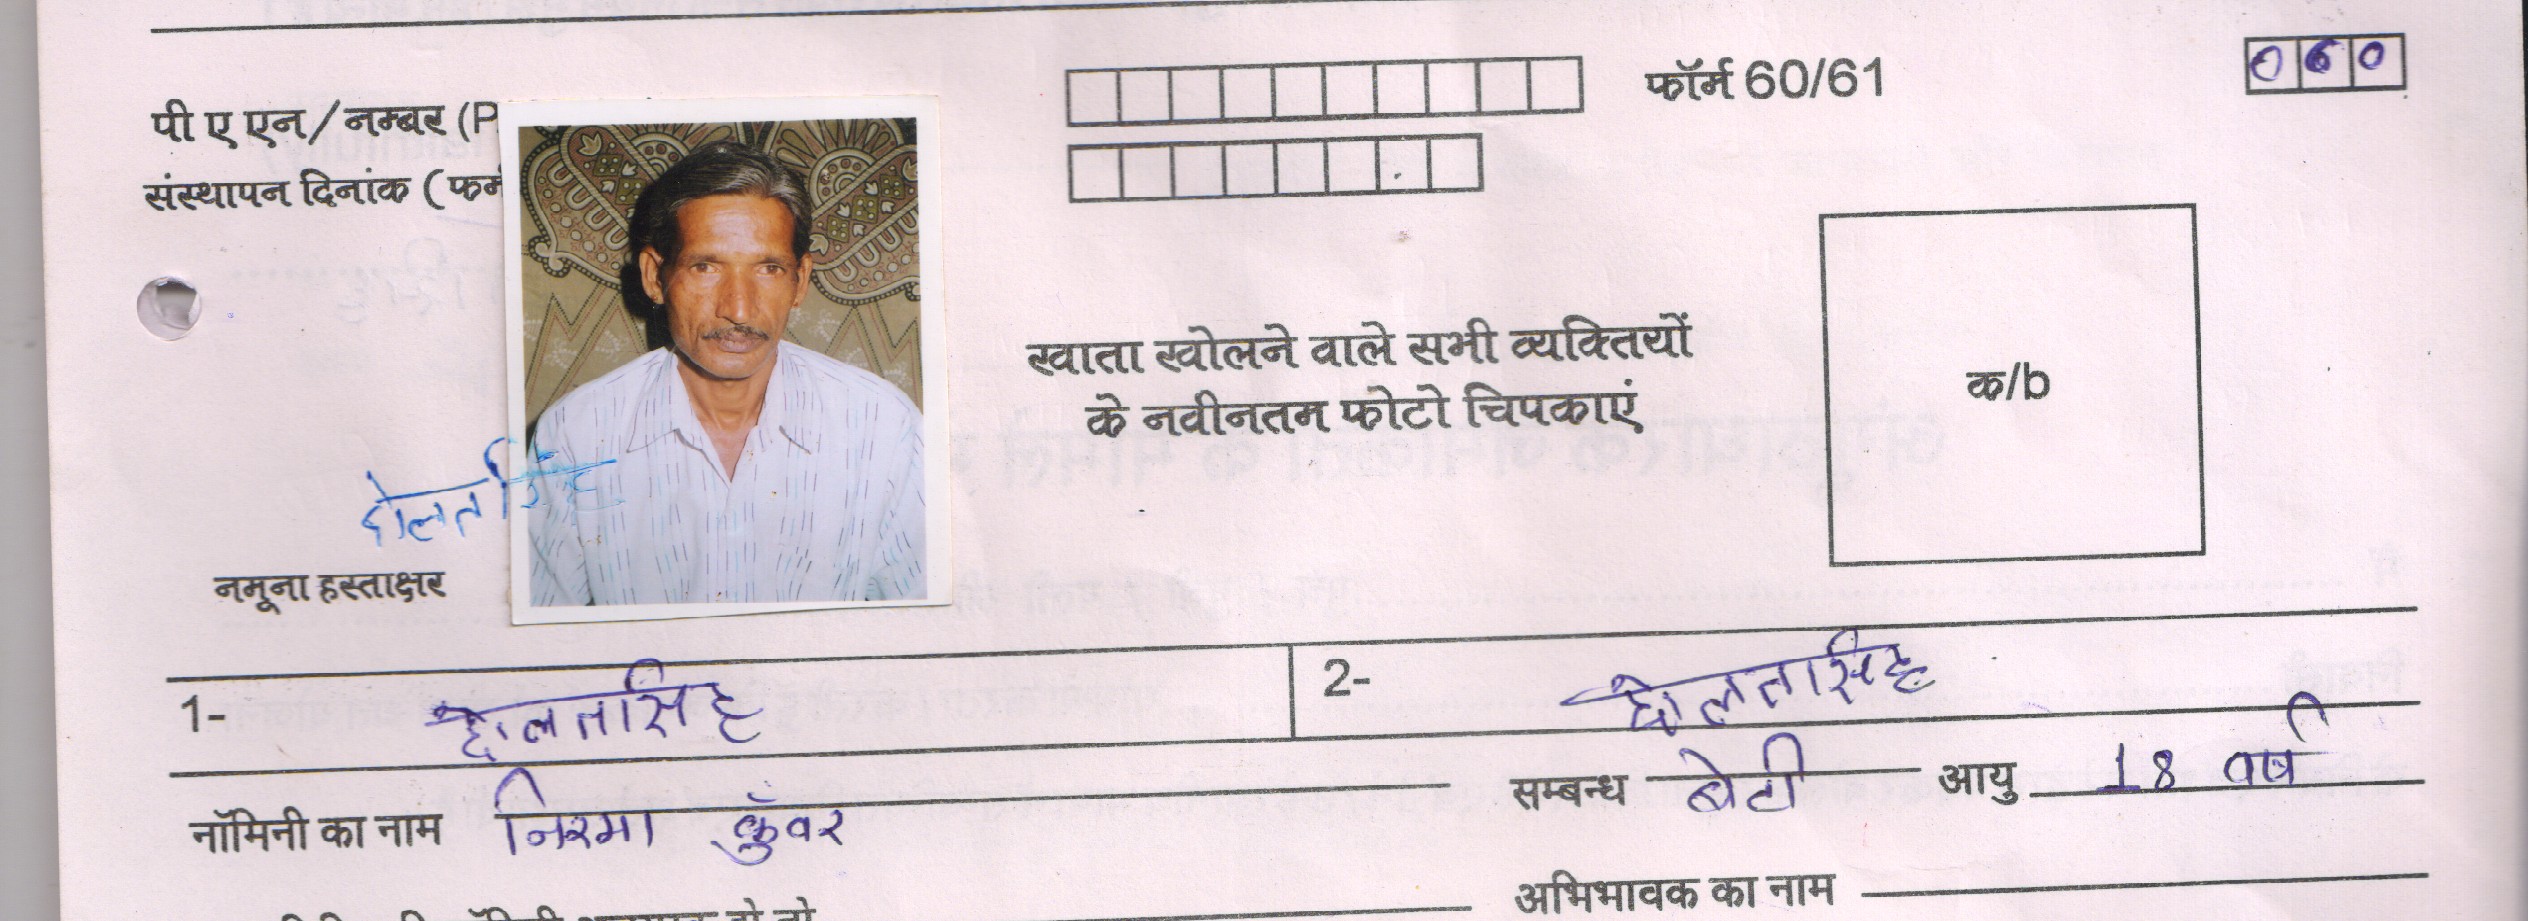 पी ए एन/नम्बर (P फॉर्म 60/61 060
संस्थापन दिनांक (फर्म
खाता खोलने वाले सभी व्यक्तियों
के नवीनतम फोटो चिपकाएं
क/b
दोलत सिंह
नमूना हस्ताक्षर
1- दोलतसिंह 2- दोलतसिंह
नॉमिनी का नाम निरमा कुँवर सम्बन्ध बेटी आयु 18 वर्ष
अभिभावक का नाम